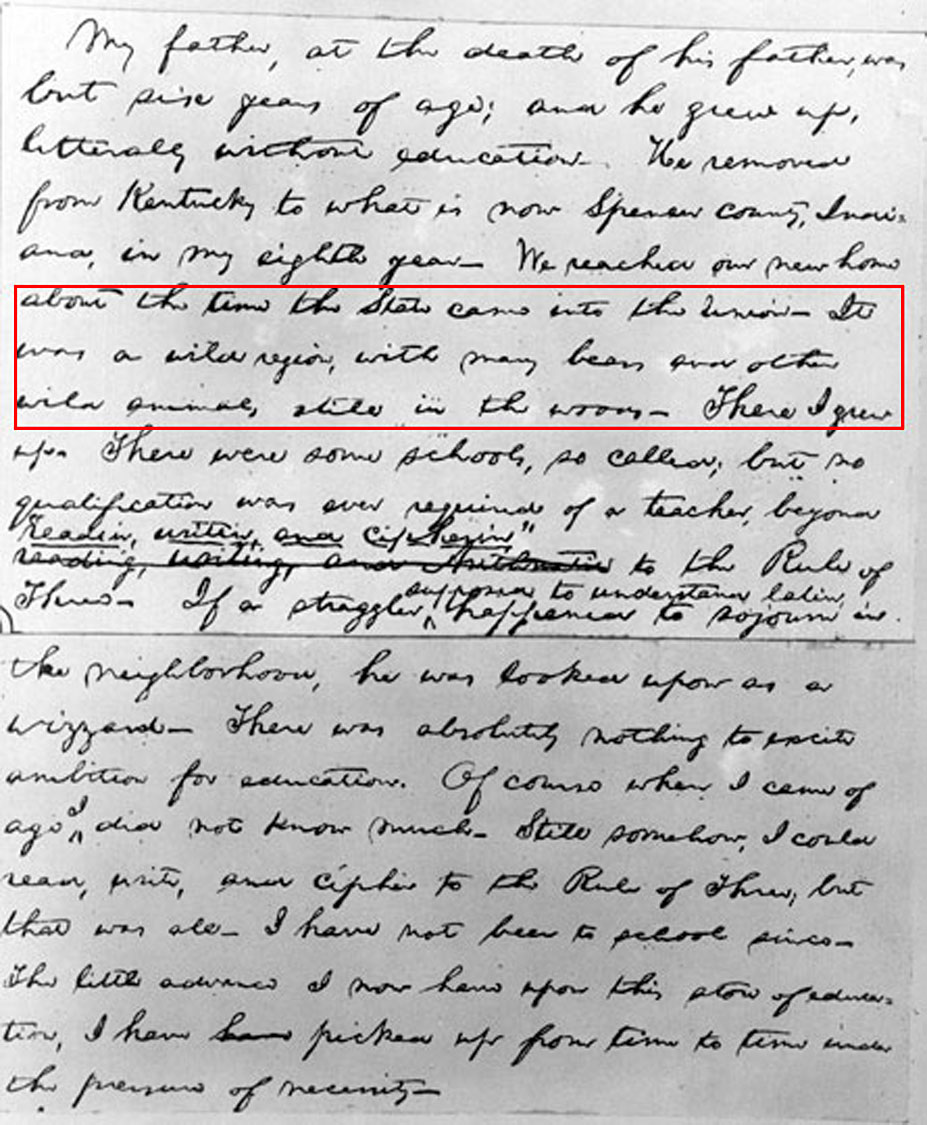 My father, at the death of his father, was
but six years of age; and he grew up,
litterally without education. He removed
from Kentucky to what is now Spencer county, Indi-
ana, in my eighth year. We reached our new home
about the time the State came into the Union. It
was a wild region, with many bears and other
wild animals, still in the woods. There I grew
up. There were some schools, so called; but no
qualification was ever required of a teacher, beyond
"readin, writin, and cipherin"
reading, writing, and Arithmetic to the Rule of
supposed to understand latin,
Three. If a straggler happened to sojourn in
the neighborhood, he was looked upon as a
wizzard. There was absolutely nothing to excite
ambition for education. Of course when I came of
age I did not know much. Still somehow, I could
read, write, and cipher to the Rule of Three; but
that was all. I have not been to school since.
The little advance I now have upon this store of educa-
tion, I have have picked up from time to time under
the pressure of necessity.